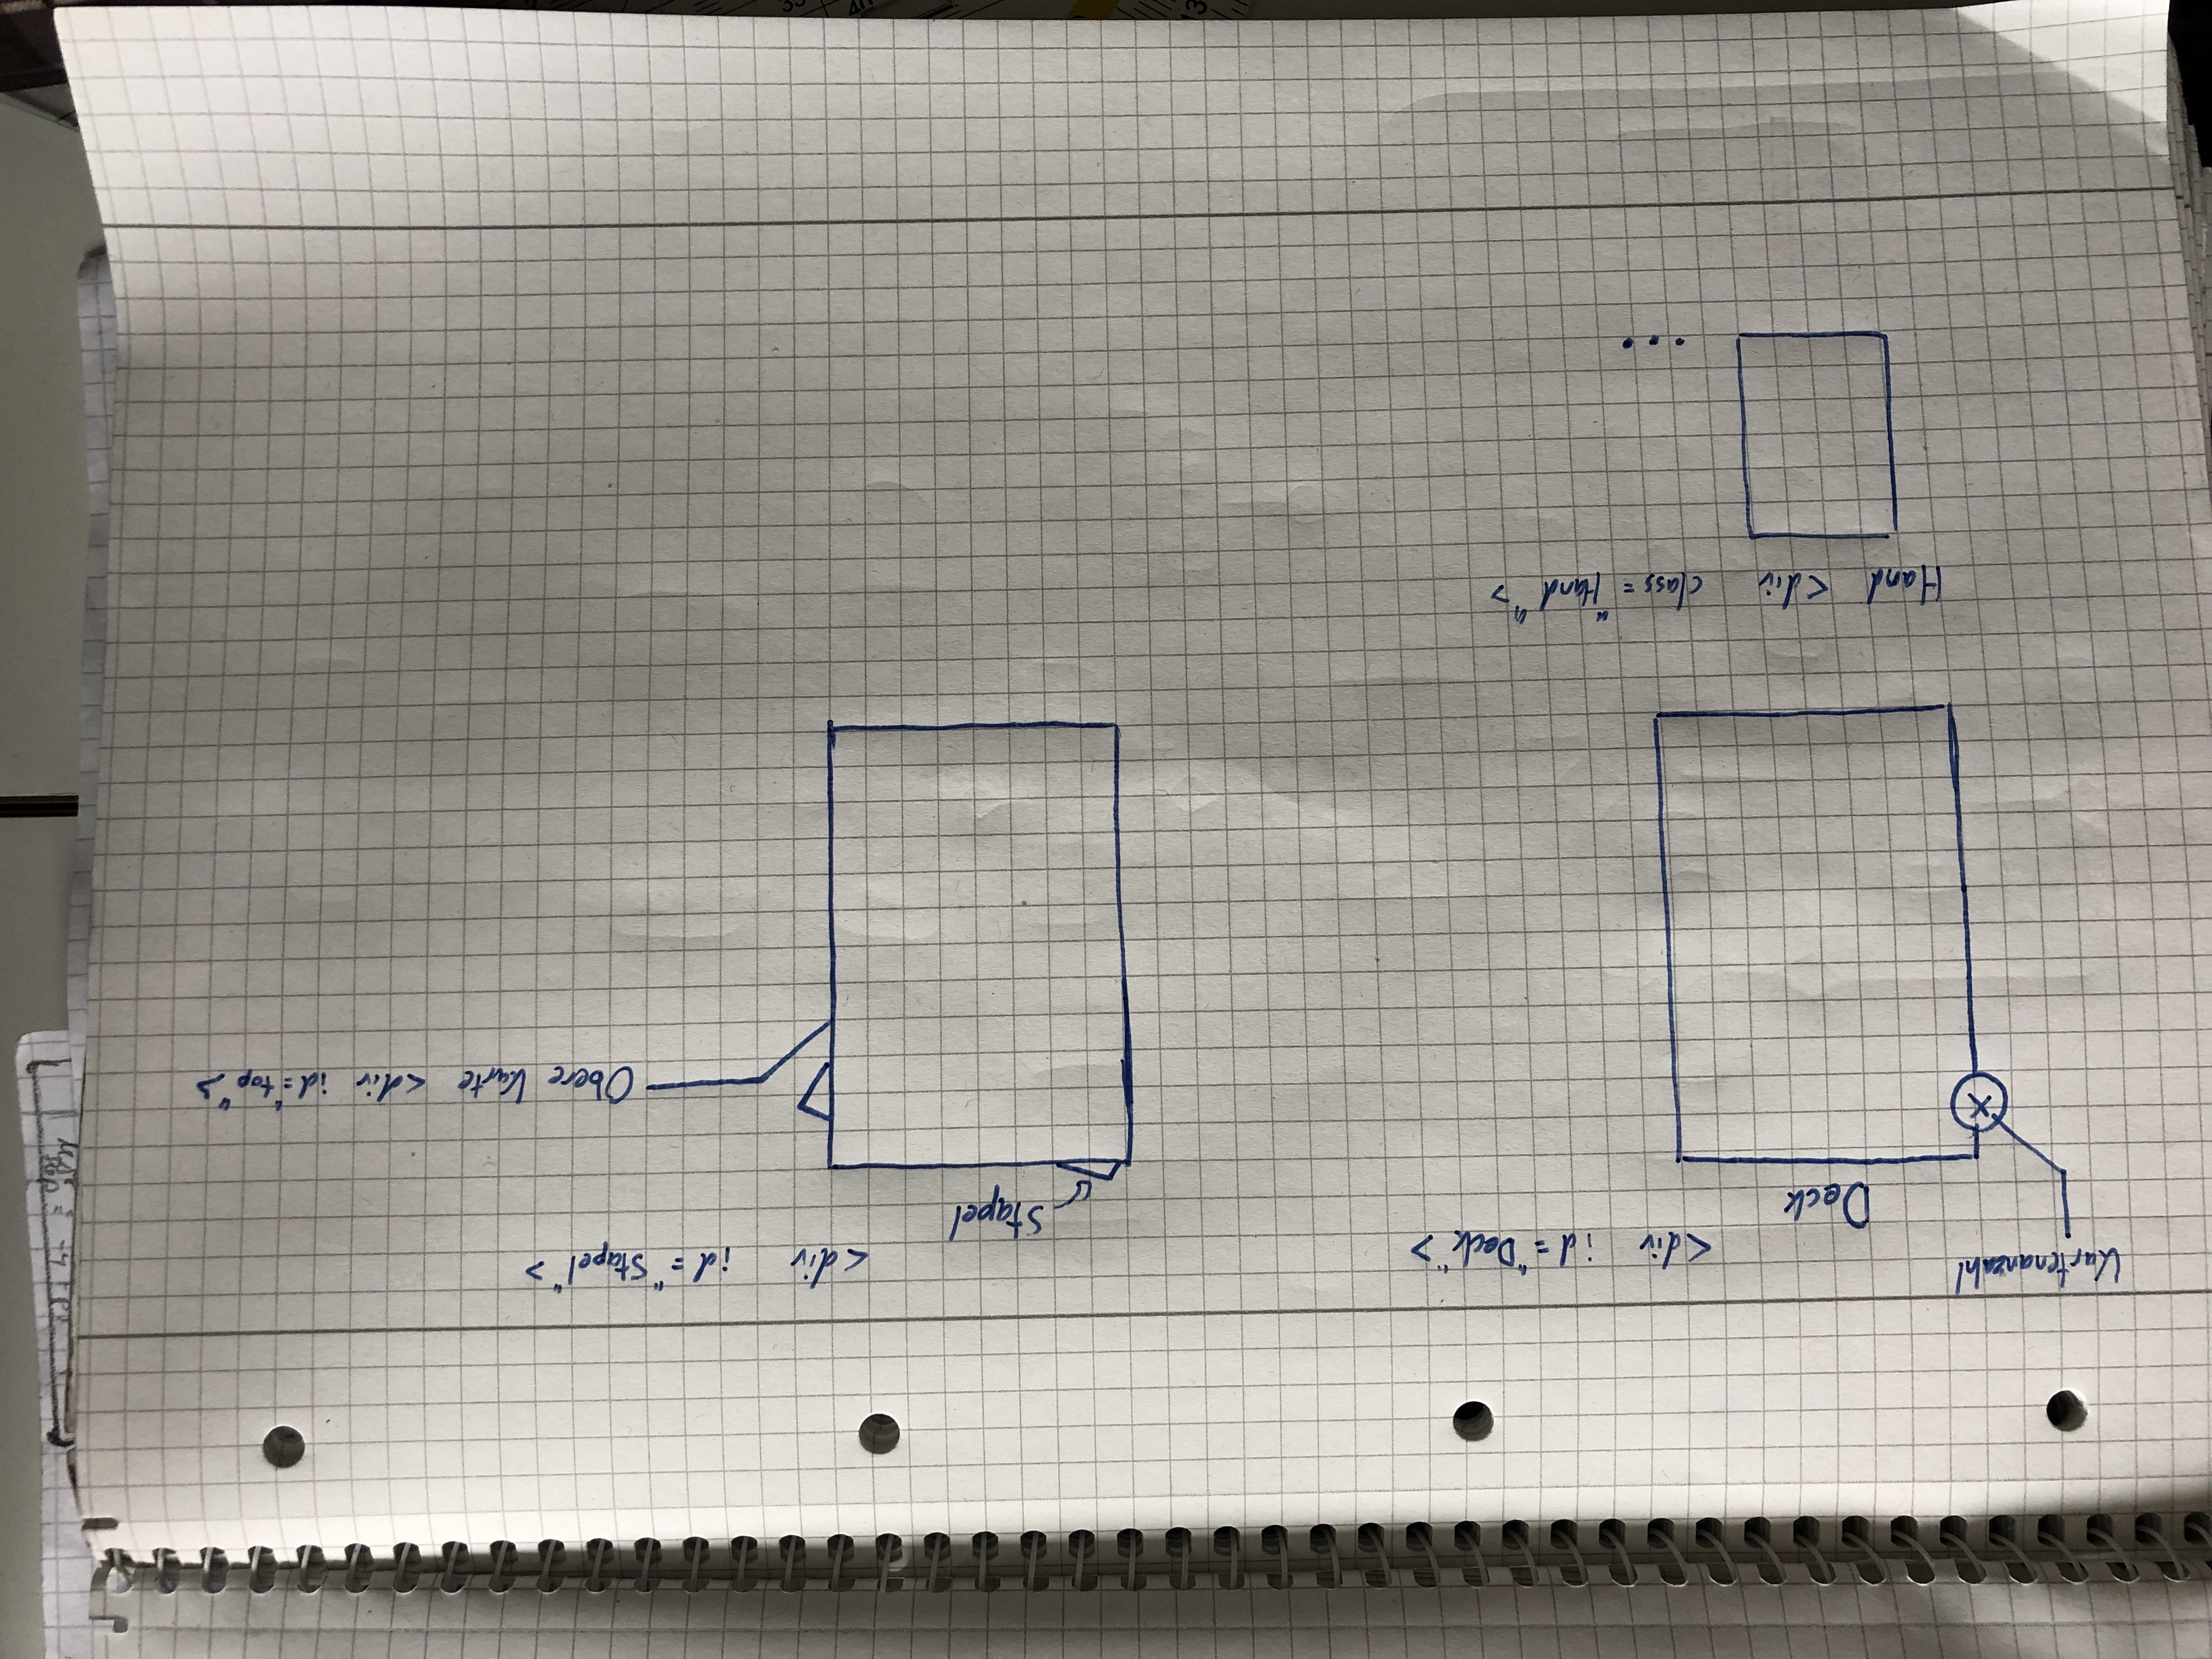 Kartenanzahl
<div id="Deck">
<div id="Stapel">
Deck
Stapel
X
Obere Karte <div id="top">
Hand <div class="Hand">
...